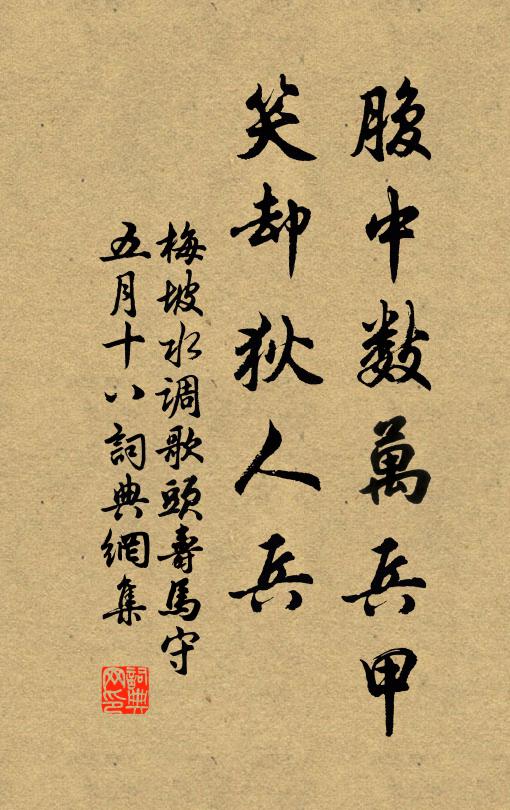 腹中数萬兵甲
笑却狄人兵
梅坡水调歌頭壽馬守
五月十八詞典網集
詞典网印